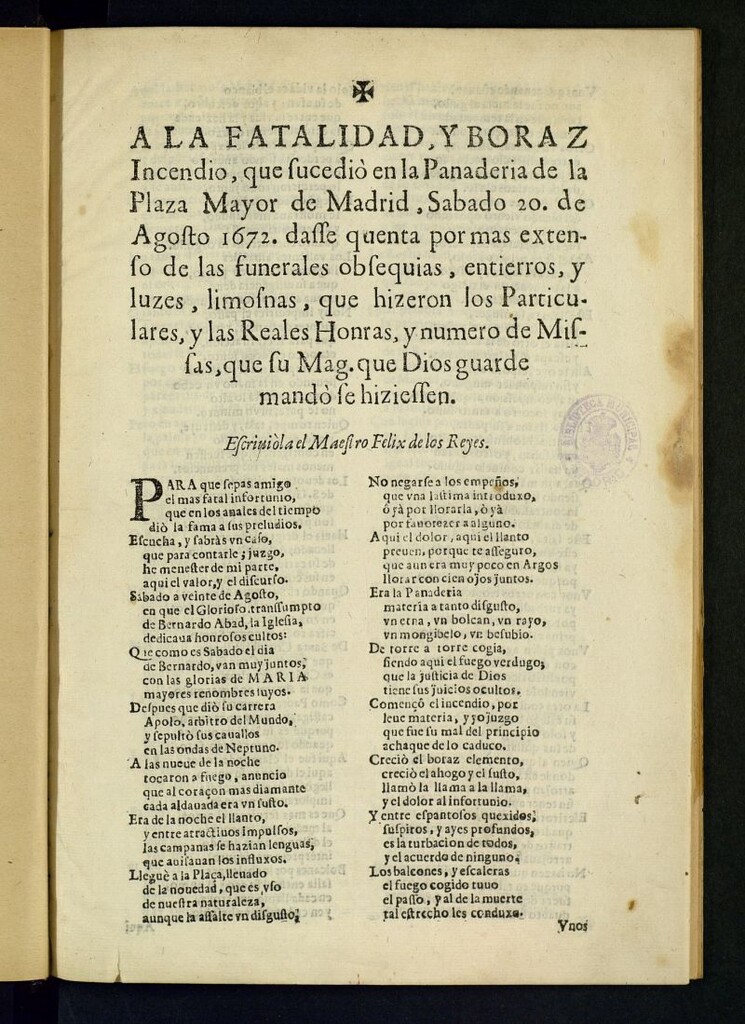 A LA FATALIDAD, Y BORAZ
Incendio, que ſucediò en la Panaderia de la
Plaza Mayor de Madrid, Sabado 20. de
Agoſto 1672. daſſe quenta por mas exten-
ſo de las funerales obſequias, entierros, y
luzes, limoſnas, que hizeron los Particu-
lares, y las Reales Honras, y numero de Miſ-
ſas, que ſu Mag. que Dios guarde
mandò ſe hizieſſen.
Eſcriuiòla el Maeſtro Felix de los Reyes.
PARA que ſepas amigo
el mas fatal infortunio,
que en los anales del tiempo
diò la fama a ſus preludios.
Eſcucha, y ſabràs vn caſo,
que para contarle; juzgo,
he meneſter de mi parte,
aqui el valor, y el diſcurſo.
Sabado a veinte de Agoſto,
en que el Glorioſo tranſſumpto
de Bernardo Abad, la Igleſia,
dedicaua honroſos cultos:
Que como es Sabado el dia
de Bernardo, van muy juntos,
con las glorias de MARIA
mayores renombres ſuyos.
Deſpues que diò ſu carrera
Apolo, arbitro del Mundo,
y ſepultò ſus cauallos
en las ondas de Neptuno.
A las nueue de la noche
tocaron a fuego, anuncio
que al coraçon mas diamante
cada aldauada era vn ſuſto.
Era de la noche el llanto,
y entre atractiuos impulſos,
las campanas ſe hazian lenguas,
que auiſauan los influxos.
Lleguè a la Plaça, lleuado
de la nouedad, que es vſo
de nueſtra naturaleza,
aunque la aſſalte vn diſguſto;
No negarſe a los empeños,
que vna laſtima introduxo,
ò yà por llorarla, ò yà
por fauorezer a alguno.
Aqui el dolor, aqui el llanto
preuen, porque te aſſeguro,
que aun era muy poco en Argos
llorar con cien ojos juntos.
Era la Panaderia
materia a tanto diſguſto,
vn etna, vn bolcan, vn rayo,
vn mongibelo, vn beſubio.
De torre a torre cogia,
ſiendo aqui el fuego verdugo;
que la juſticia de Dios
tiene ſus juicios ocultos.
Començò el incendio, por
leue materia, y yo juzgo
que fue ſu mal del principio
achaque de lo caduco.
Creciò el boraz elemento,
creciò el ahogo y el ſuſto,
llamò la llama a la llama,
y el dolor al infortunio.
Y entre eſpantoſos quexidos;
ſuſpiros, y ayes profundos,
es la turbacion de todos,
y el acuerdo de ninguno.
Los balcones, y eſcaleras
el fuego cogido tuuo
el paſſo, y al de la muerte
tal eſtrecho les conduxo.
Vnos